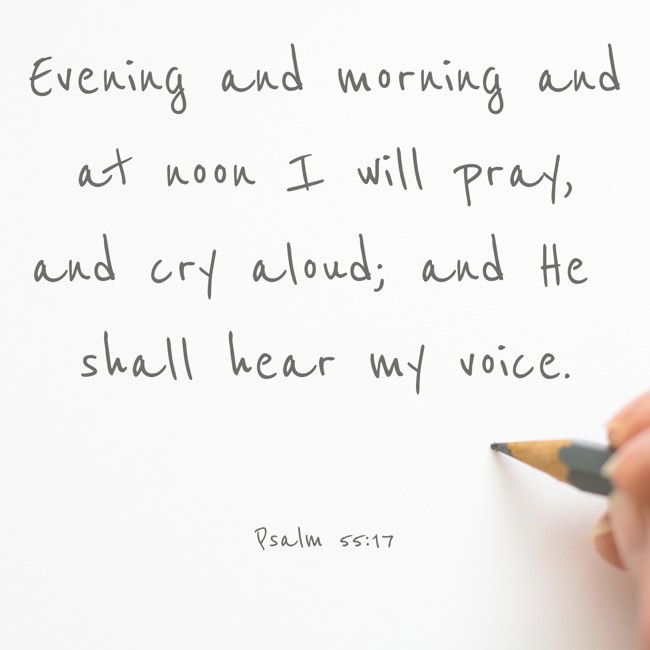 Evening and morning and
at noon I will pray,
and cry aloud; and He
shall hear my voice.
Psalm 55:17